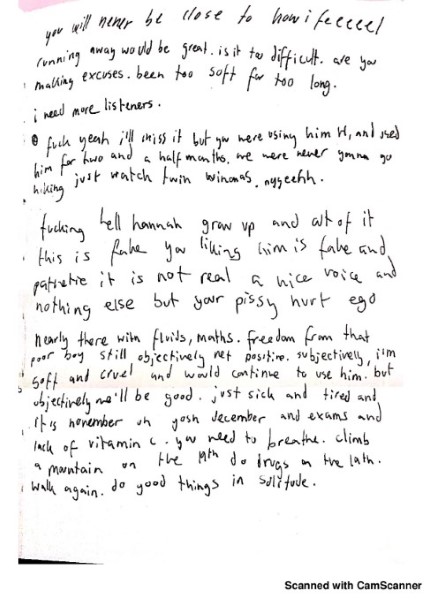 you will never be close to how i feeeeel
running away would be great. is it too difficult. are you
making excuses. been too soft for too long.
i need more listeners.
fuck yeah i'll miss it but you were using him H, and used
him for two and a half months. we were never gonna go
hiking just watch twin
fucking hell hannah grow up and out of it
this is fake you liking him is fake and
pathetic it is not real a nice voice and
nothing else but your pissy hurt ego
nearly there with fluids, maths. freedom from that
poor boy still objectively net positive. subjectively, i'm
soft and cruel and would continue to use him. but
objectively we'll be good. just sick and tired and
it is november uh gosh december and exams and
lack of vitamin c. you need to breathe. climb
a mountain on the 19th do drugs on the
walk again. do good things in solitude.
Scanned with CamScanner